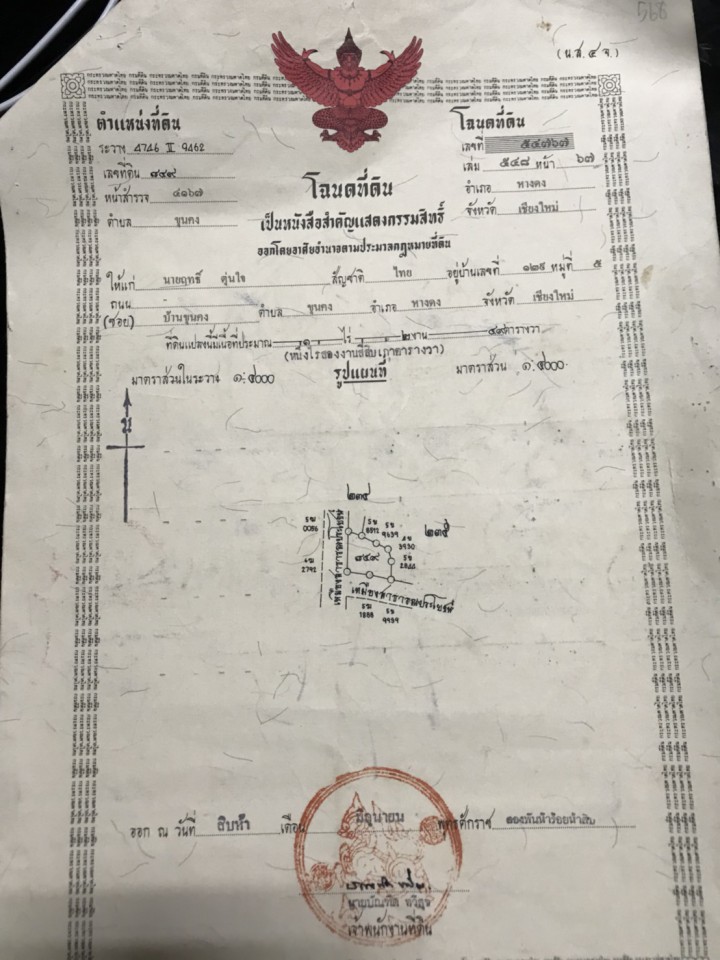 568
(น.ส. ๔ จ.)
ตำแหน่งที่ดิน
ระวาง 4746 II 9462
เลขที่ดิน ๘๔๙
หน้าสำรวจ ๔๑๖๗
ตำบล ขุนคง
โฉนดที่ดิน
เลขที่ ๕๔๗๖๗
เล่ม ๕๔๘ หน้า ๖๗
อำเภอ หางดง
จังหวัด เชียงใหม่
โฉนดที่ดิน
เป็นหนังสือสำคัญแสดงกรรมสิทธิ์
ออกโดยอาศัยอำนาจตามประมวลกฎหมายที่ดิน
ให้แก่ นายฤทธิ์ ตุ่นใจ สัญชาติ ไทย อยู่บ้านเลขที่ ๑๒๙ หมู่ที่ ๕
ถนน
(ซอย) บ้านขุนคง ตำบล ขุนคง อำเภอ หางดง จังหวัด เชียงใหม่
ที่ดินแปลงนี้มีเนื้อที่ประมาณ ๑ ไร่ ๒ งาน ๔๙ ตารางวา
(หนึ่งไร่สองงานสี่สิบเก้าตารางวา)
มาตราส่วนในระวาง ๑:๔๐๐๐
รูปแผนที่
มาตราส่วน ๑:๔๐๐๐
น
๒๓๔
๒๓๕
๘๔๙
0086
2792
3930
เหมืองสาธารณประโยชน์
ออก ณ วันที่ สิบห้า เดือน มิถุนายน พุทธศักราช สองพันห้าร้อยห้าสิบ
เจ้าพนักงานที่ดิน